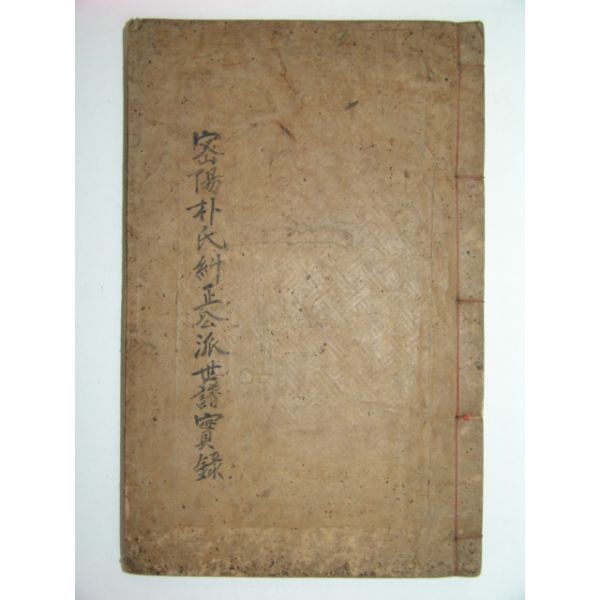 密陽朴氏糾正公派世譜實錄